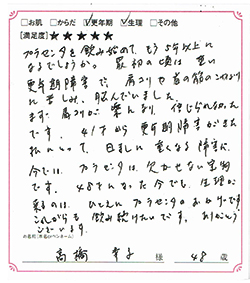 □お肌 □からだ ☑更年期 ☑生理 □その他
[満足度]★★★★★
プラセンタを飲み始めて、もう5年以上に
なるでしょうか。最初の頃は重い
更年期障害で、肩コリや首の筋のこわばり
に苦しみ、悩んでいました。
まず、肩コリが楽になり、信じられなかった
です。41才から更年期障害が始
私にとって、日ましに重くなる障害に、
今では、プラセンタは、欠かせない宝物
です。48才になった今でも、生理が
来るのは、ひとえにプラセンタのおかげです
これからも飲み続けたいです。ありがとう
ございます。
お名前(本名orペンネーム)
高橋 幸子 様 48 歳